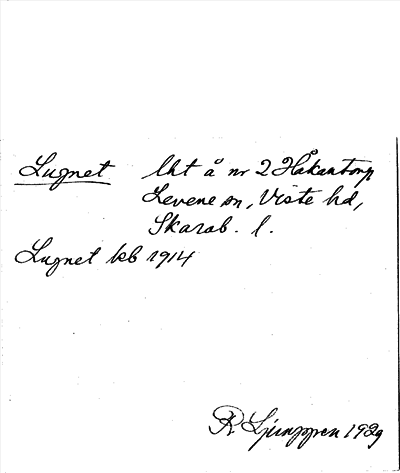 Lugnet lht å nr 2 Håkantorp
Levene sn, Viste hd,
Skarab. l.
Lugnet kb 1914
R Ljunggren 1929